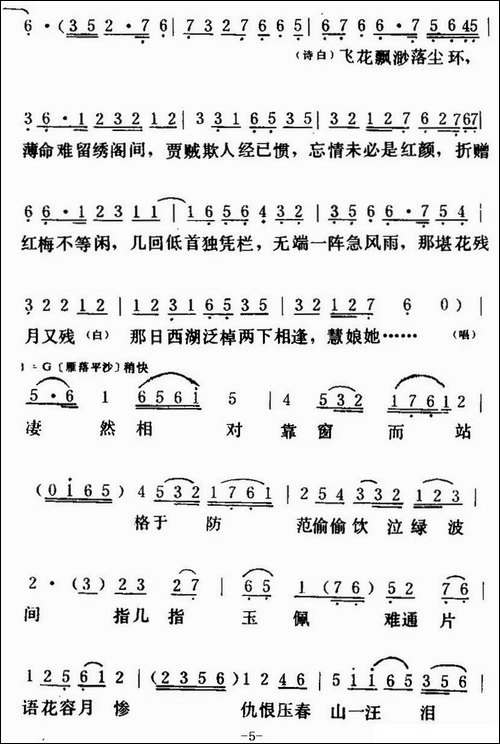 6 · (3 5 2 · 7 6) | 7 2 7 6 6 5 | 6 7 6 6 · 7 | 5 6 45 |
(诗白) 飞花飘渺落尘环，
3 6 · 1 2 3 2 1 2 | 3 3 1 6 5 3 5 | 1 2 3 1 2 7 6 2 7 67 |
薄命难留绣阁间，贾贼欺人经已惯，忘情未必是红颜，折赠
6 6 · 1 2 3 1 1 | 1 6 5 6 4 3 2 | 1 2 3 5 6 6 · 7 5 4 5 |
红梅不等闲，几回低首独凭栏，无端一阵急风雨，那堪花残
3 2 2 1 2 | 1 2 3 1 6 5 3 5 | 3 2 1 2 7 6 0 ) |
月又残 (白) 那日西湖泛棹两下相逢，慧娘她…… (唱)
1 = G〔雁落平沙〕稍快
5 · 6 1 6 5 6 1 5 | 4 5 3 2 1 7 6 1 2 |
凄 然 相 对 靠 窗 而 站
( 0 i 6 5 ) 4 5 3 2 1 7 6 1 | 2 5 4 3 3 2 1 2 2 1 2 3 |
格于 防 范偷偷饮 泣绿 波
2 · ( 3 ) 2 3 2 7 | 6 5 1 ( 7 6 ) 5 2 7 6 |
间 指几指 玉 佩 难通 片
1 2 5 6 1 2 ( 2 3 5 6 ) 1 2 4 6 | 5 i i 6 5 3 5 2 3 5 |
语花容月 惨 仇恨压春 山一汪 泪
-5-